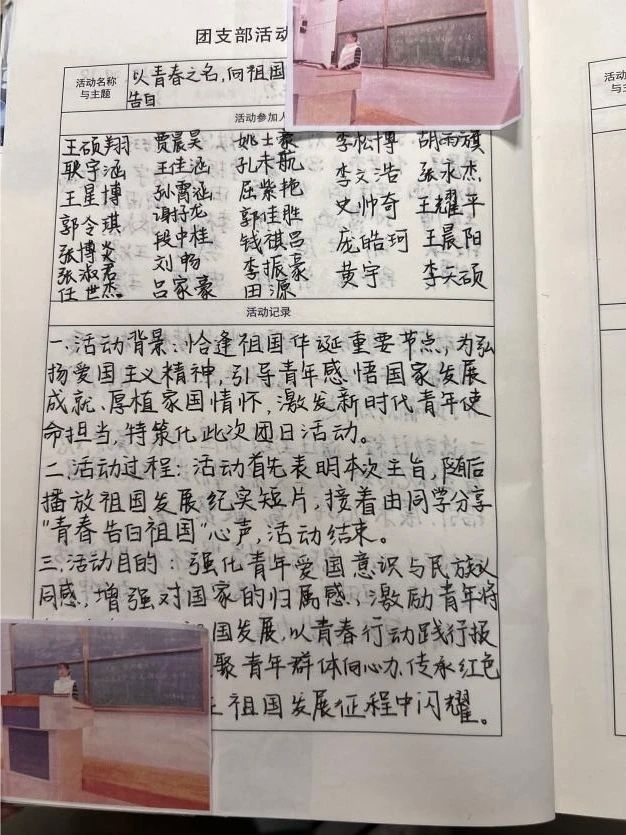 团支部活动
活动名称与主题
以青春之名,向祖国
告白
活动参加人
王硕翔 贾晨昊 姚士豪 李松博 胡雨旗
耿宇涵 王佳涵 孔未航 李文浩 张永杰
王星博 孙霄涵 屈紫艳 史帅奇 王耀平
郭令琪 谢好龙 郭佳胜 庞皓珂 王晨阳
张博炎 段中桂 钱祺吕 黄宇 李天硕
张淑君 刘畅 李振豪
任世杰 吕家豪 田源
活动记录
一.活动背景:恰逢祖国华诞重要节点,为弘
扬爱国主义精神,引导青年感悟国家发展
成就、厚植家国情怀,激发新时代青年使
命担当,特策化此次团日活动。
二.活动过程:活动首先表明本次主旨,随后
播放祖国发展纪实短片,接着由同学分享
"青春告白祖国"心声,活动结束。
三.活动目的:强化青年爱国意识与民族认
同感,增强对国家的归属感,激励青年将
国发展,以青春行动践行报
聚青年群体向心力,传承红色
祖国发展征程中闪耀。
活动
与主